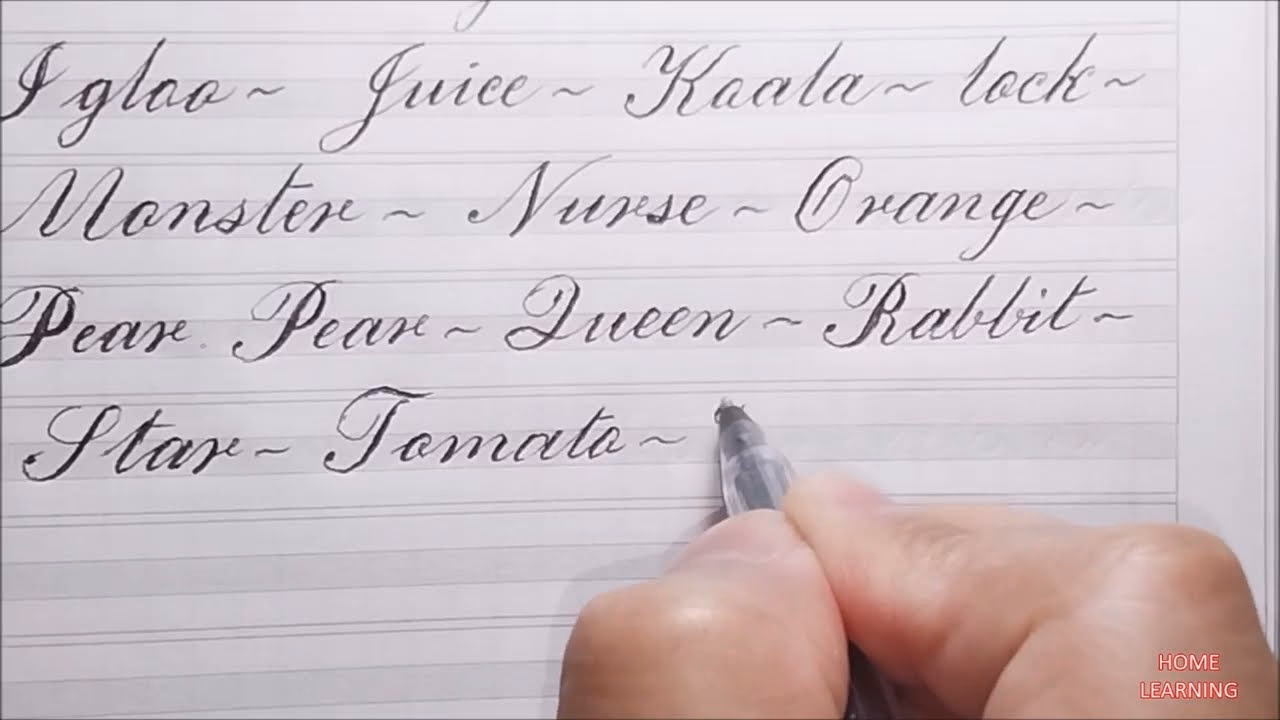 Igloo ~ Juice ~ Koala ~ lock ~
Monster ~ Nurse ~ Orange ~
Pear Pear ~ Queen ~ Rabbit ~
Star ~ Tomato ~
HOME
LEARNING